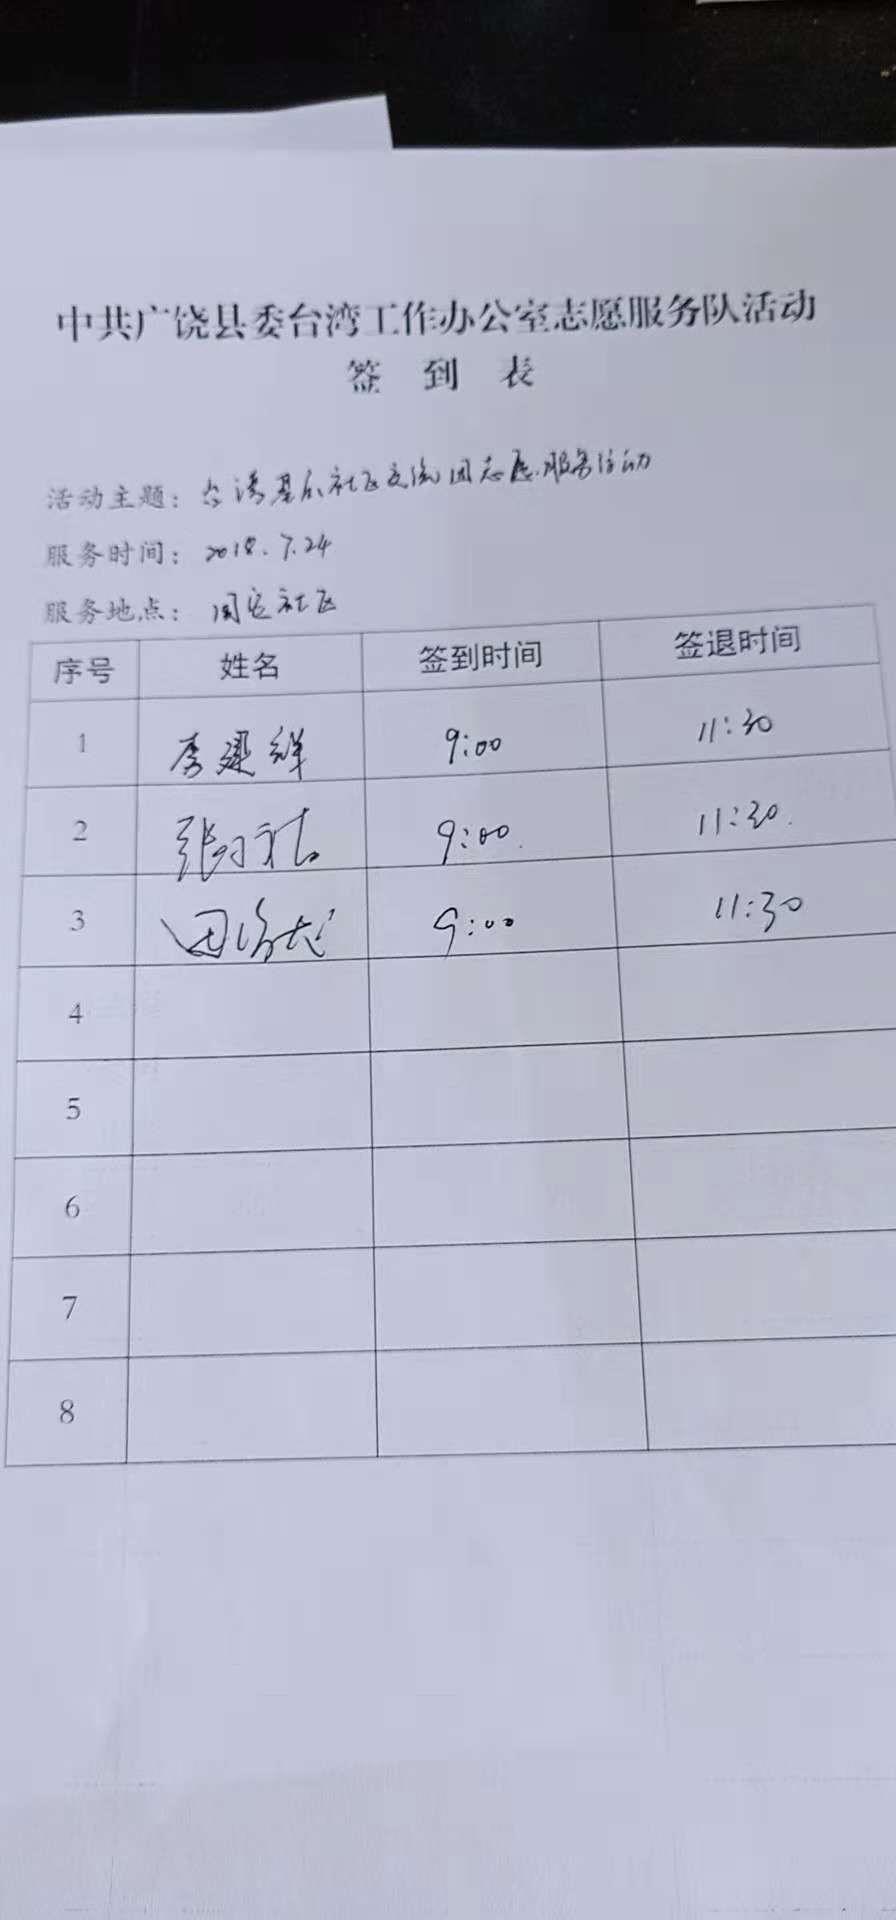 中共广饶县委台湾工作办公室志愿服务队活动
签 到 表
活动主题：台湾基层社区交流团志愿服务活动
服务时间：2018.7.24
服务地点：社区
序号 姓名 签到时间 签退时间
1 李建祥 9:00 11:30
2 张 9:00 11:30
3 田 9:00 11:30
4
5
6
7
8